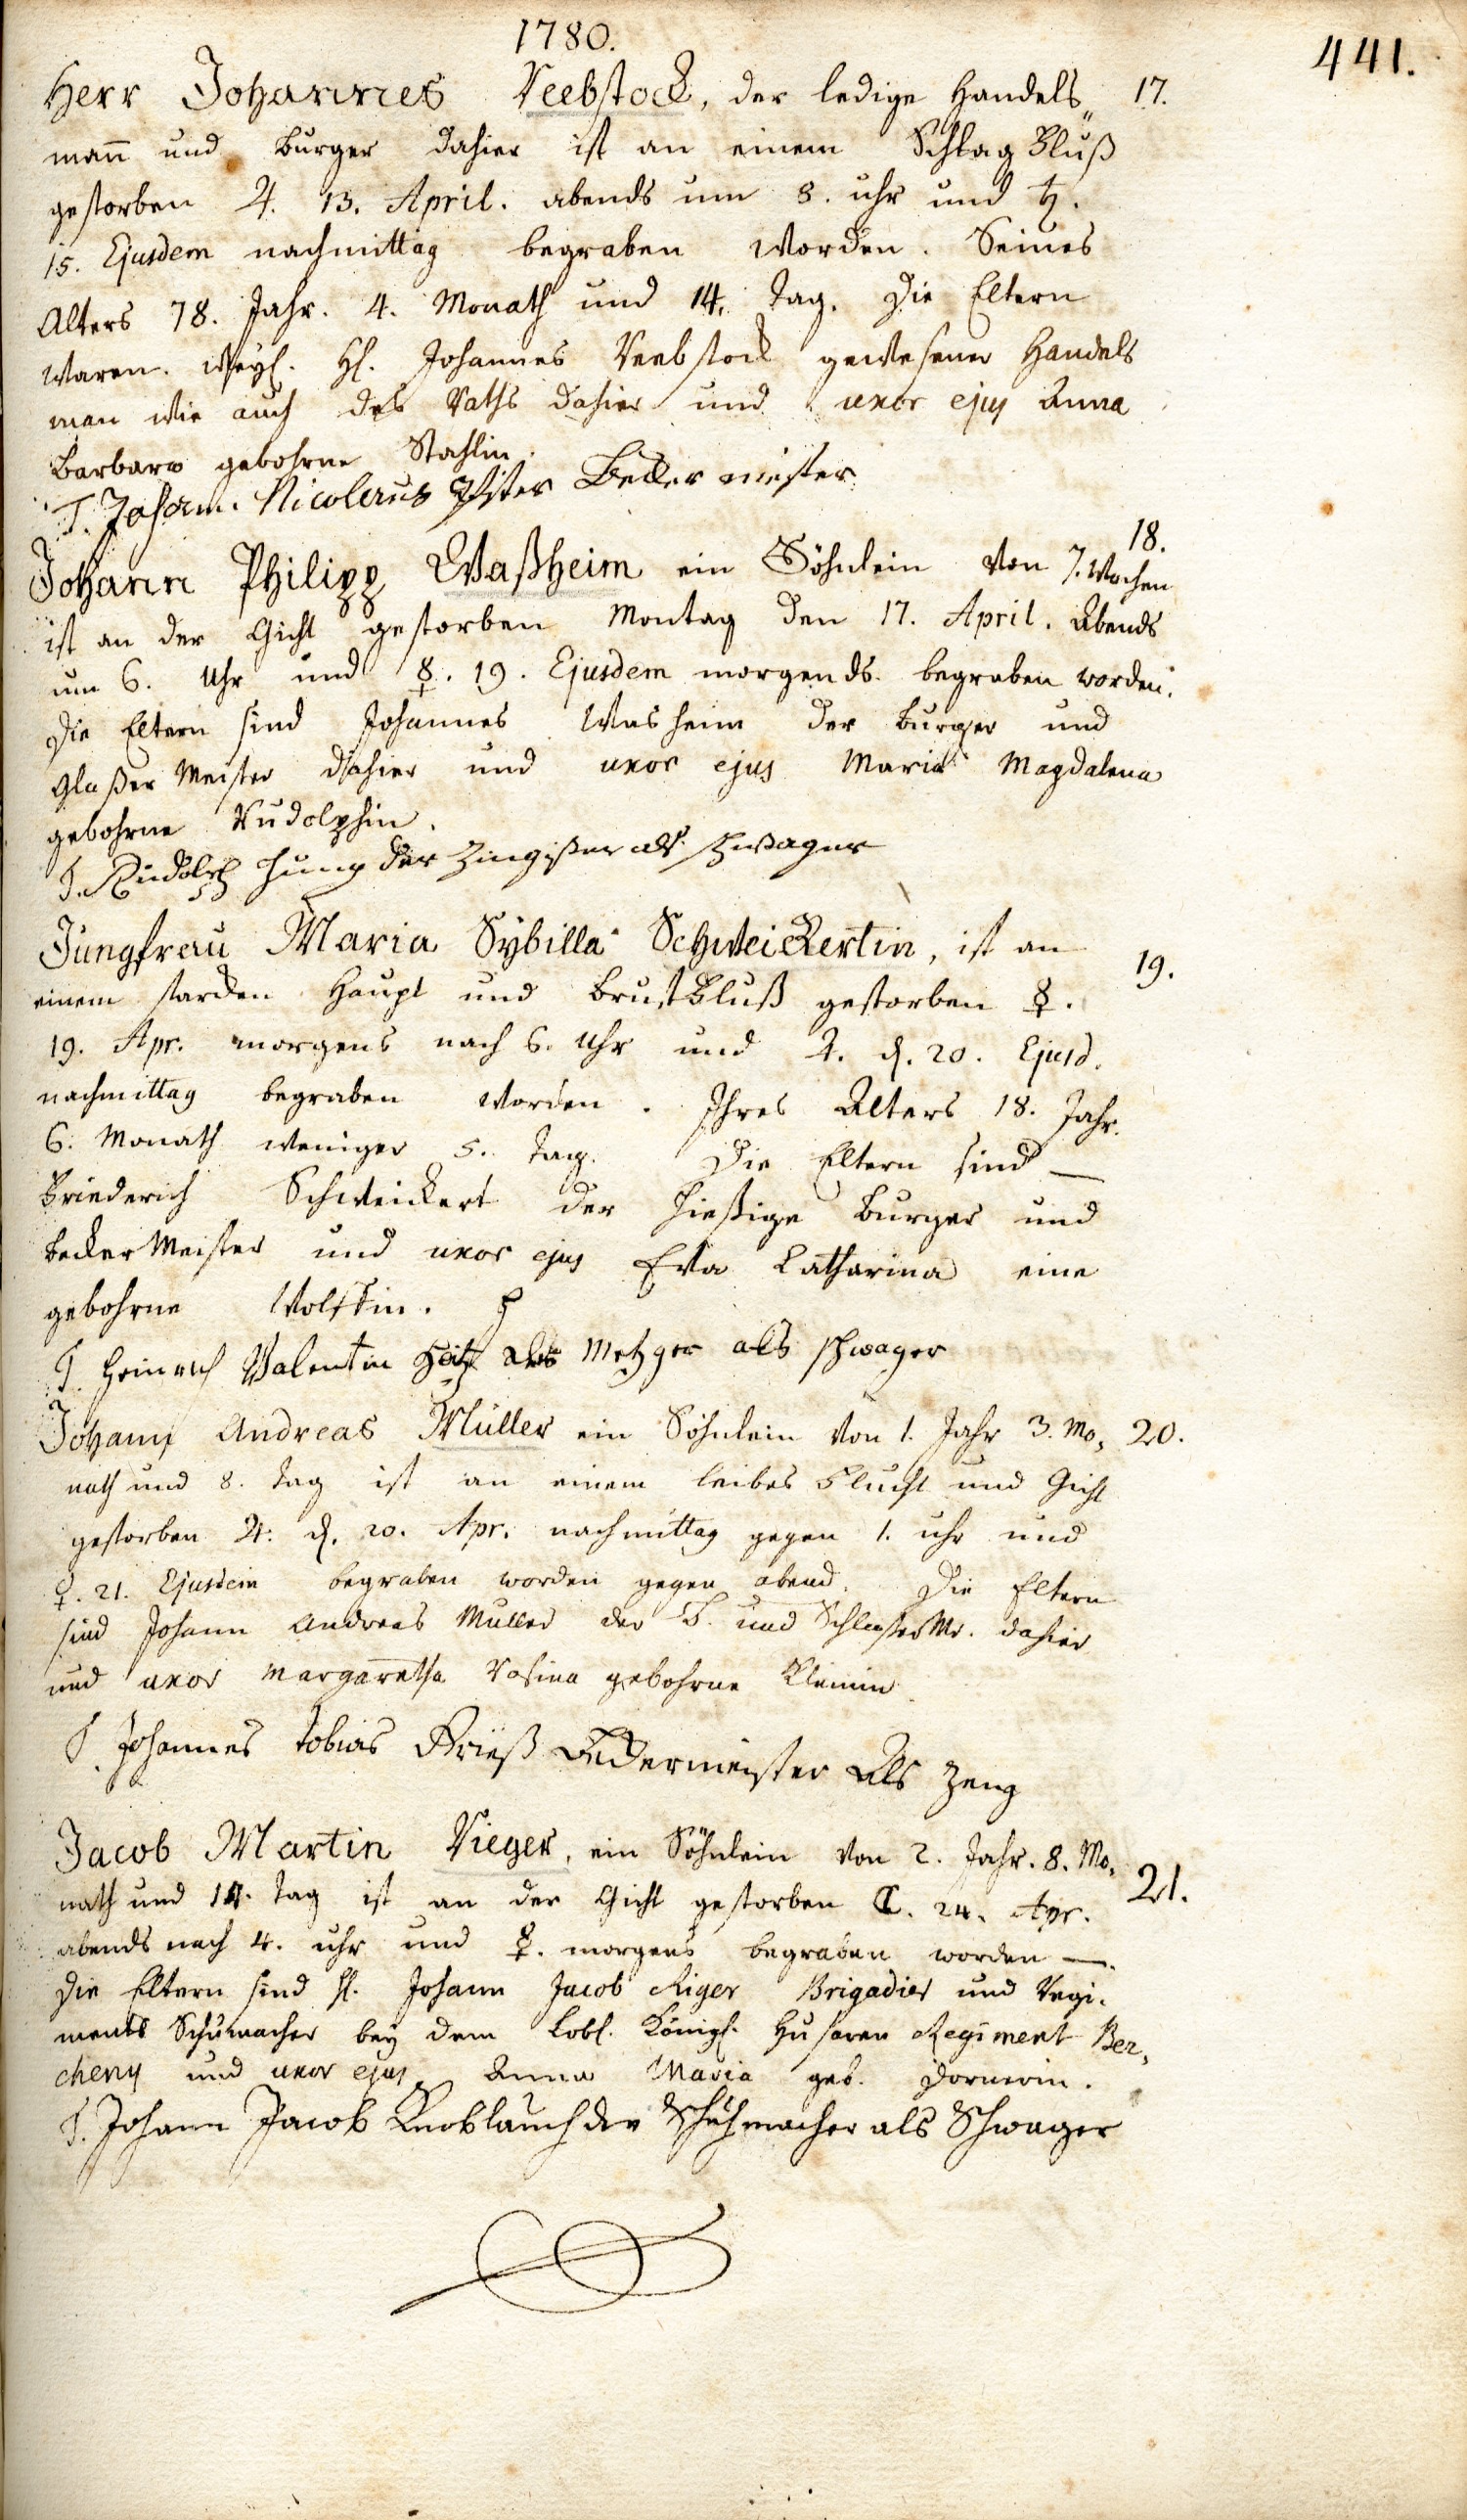 1780.
441.
Herr Johannes Reebstock, der ledige Handels„ 17.
mann und Burger dahier ist an einem Schlag Fluß
gestorben ♃. 13. April. abends um 8. uhr und ♄.
15. Ejusdem nachmittag begraben worden. Seines
Alters 78. Jahr. 4. Monath und 14. Tag. Die Eltern
waren. weyl. H. Johannes Reebstock gewesener Handels
man wie auch des Raths dahier und uxor ejus Anna
Barbara gebohrne Stahlin.
T. Johann. Nicolaus Pfister Becker meister
18.
Johann Philipp Waßheim ein Söhnlein von 7. Wochen
ist an der Gicht gestorben Montag den 17. April. Abends
um 6. Uhr und ☿. 19. Ejusdem morgends begraben worden.
Die Eltern sind Johannes Washeim der Burger und
Glaßer Meister dahier und uxor ejus Maria Magdalena
gebohrne Rudolphin.
T. Rudolph Jung der Zingißer als schwager
Jungfrau Maria Sybilla Schweickertin, ist an 19.
einem starcken Haupt und Brust Fluß gestorben ☿.
19. Apr. morgens nach 6. Uhr und ♃. d. 20. Ejusd.
nachmittag begraben worden. Ihres Alters 18. Jahr.
6. Monath weniger 5. Tag. Die Eltern sind —
Friederich Schweickert der hießige Burger und
Becker Meister und uxor ejus Eva Catharina eine
gebohrne Wolffin.
T. Heinrich Valentin Heitz Metzger als schwager
Johann Andreas Müller ein Söhnlein von 1. Jahr 3. Mo, 20.
nath und 8. Tag ist an einem leibes Flucht und Gicht
gestorben ♃. d. 20. Apr. nachmittag gegen 1. uhr und
♀. 21. Ejusdem begraben worden gegen abend. Die Eltern
sind Johann Andreas Müller der B. und Schloßer Mr. dahier
und uxor Margaretha Rosina gebohrne Kleinin
T. Johannes Tobias Krieß Beckermeister Als Zeug
Jacob Martin Rieger, ein Söhnlein von 2. Jahr. 8. Mo, 21.
nath und 14. Tag ist an der Gicht gestorben ☾. 24. Apr.
abends nach 4. uhr und ☿. morgens begraben worden —.
Die Eltern sind H. Johann Jacob Riger Brigadier und Regi.
ments Schumacher bey dem Lobl. Königl. Husaren Regiment Ber,
cheny und uxor ejus Anna Maria geb. Dornerin.
T. Johann Jacob Knoblauch der Schuhmacher als Schwager